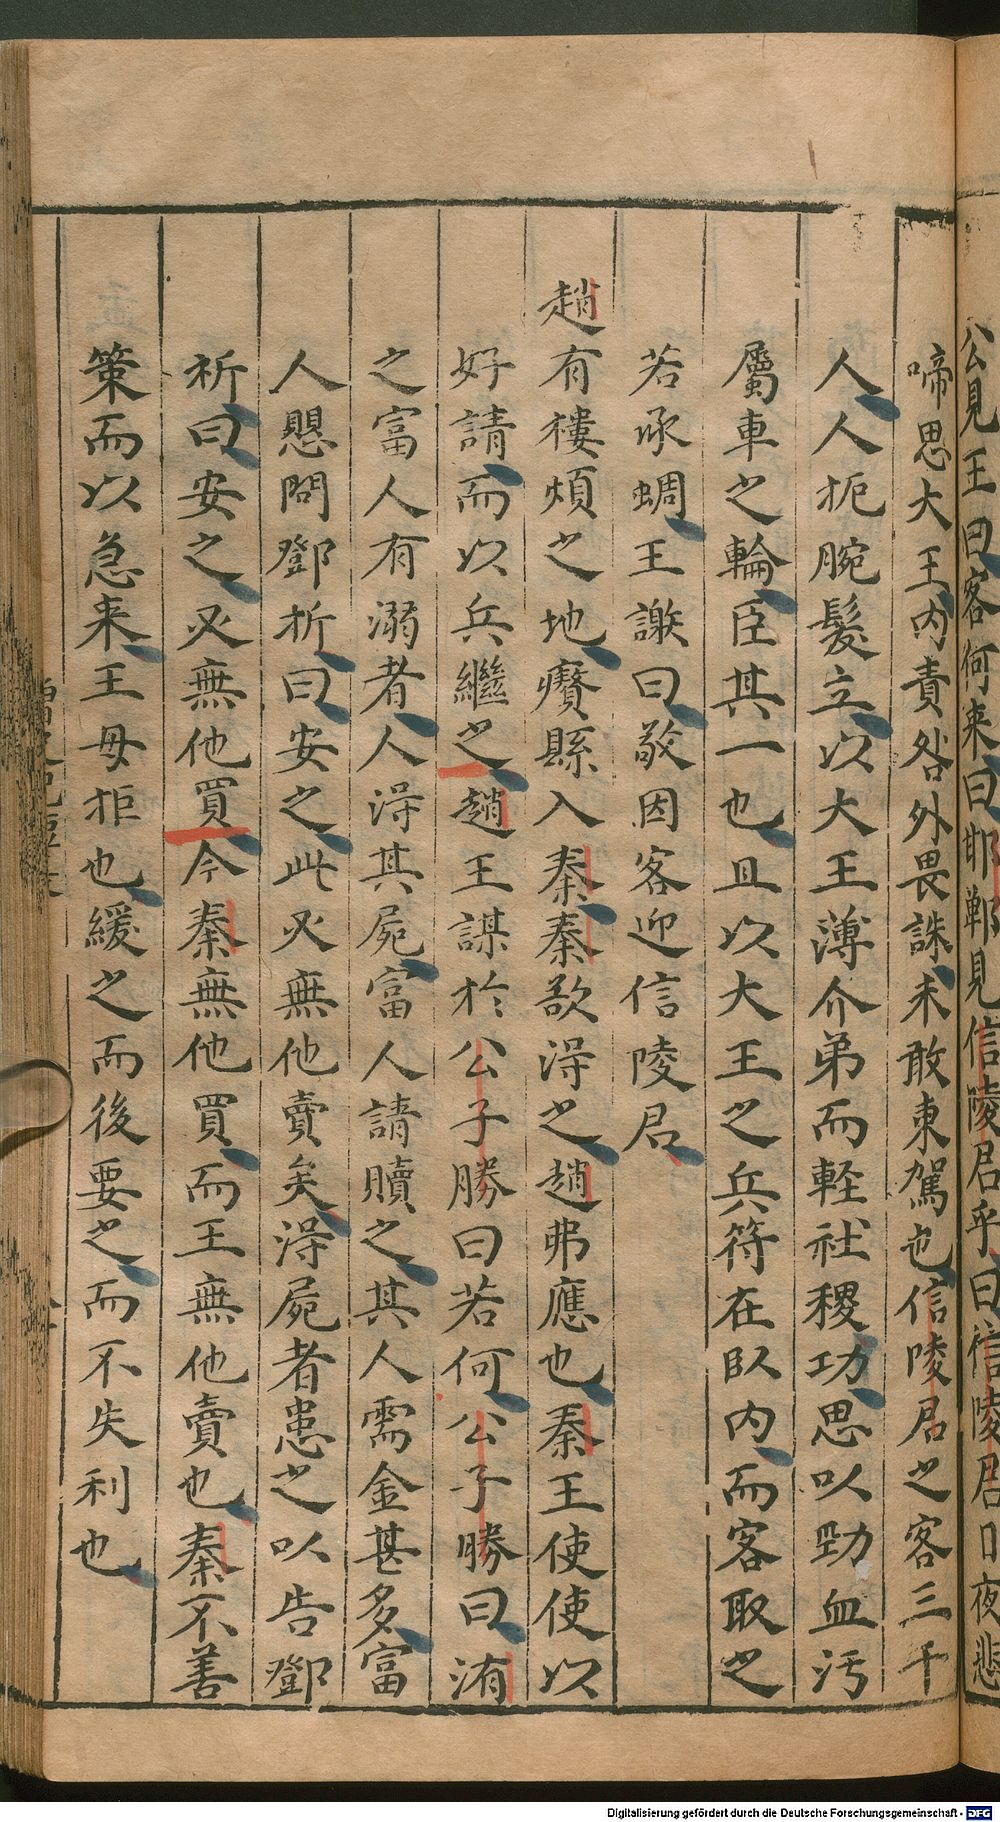 公見王曰客何来曰邯鄲見信陵君乎曰信陵君日夜悲
啼思大王内責咎外畏誅未敢東駕也信陵君之客三千
人人扼腕髮立以大王薄介弟而軽社稷功思以勁血汚
屬車之輪臣其一也且以大王之兵符在臥内而客取之
若承蜩王謝曰敬因客迎信陵君
趙有樓煩之地癠縣入秦秦欲淂之趙弗應也秦王使使以
好請而以兵繼之趙王謀於公子勝曰若何公子勝曰洧
之富人有溺者人淂其屍富人請贖之其人需金甚多富
人愳問鄧析曰安之此必無他賣矣淂屍者患之以告鄧
析曰安之必無他買今秦無他買而王無他賣也秦不善
策而以急来王毋拒也緩之而後要之而不失利也
Digitalisierung gefördert durch die Deutsche Forschungsgemeinschaft - DFG